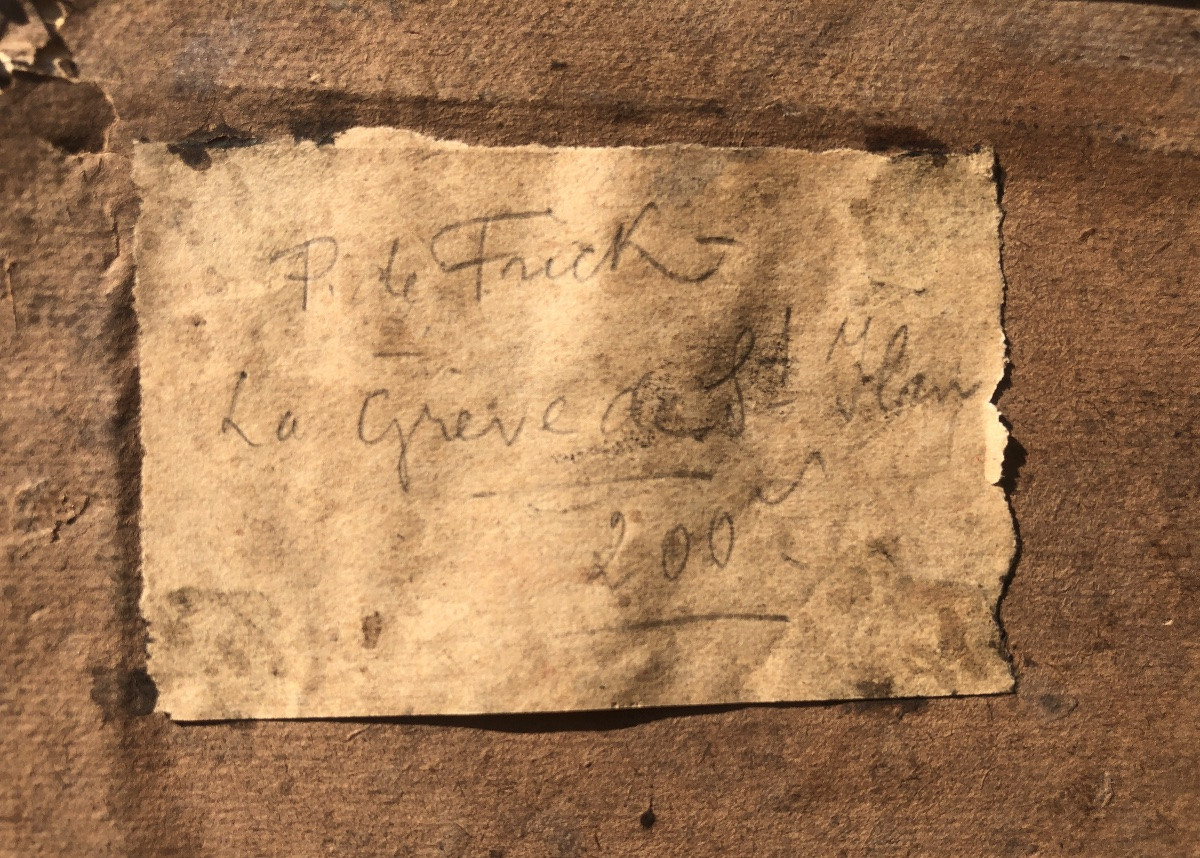 P. de Frick
La Grève de St
200